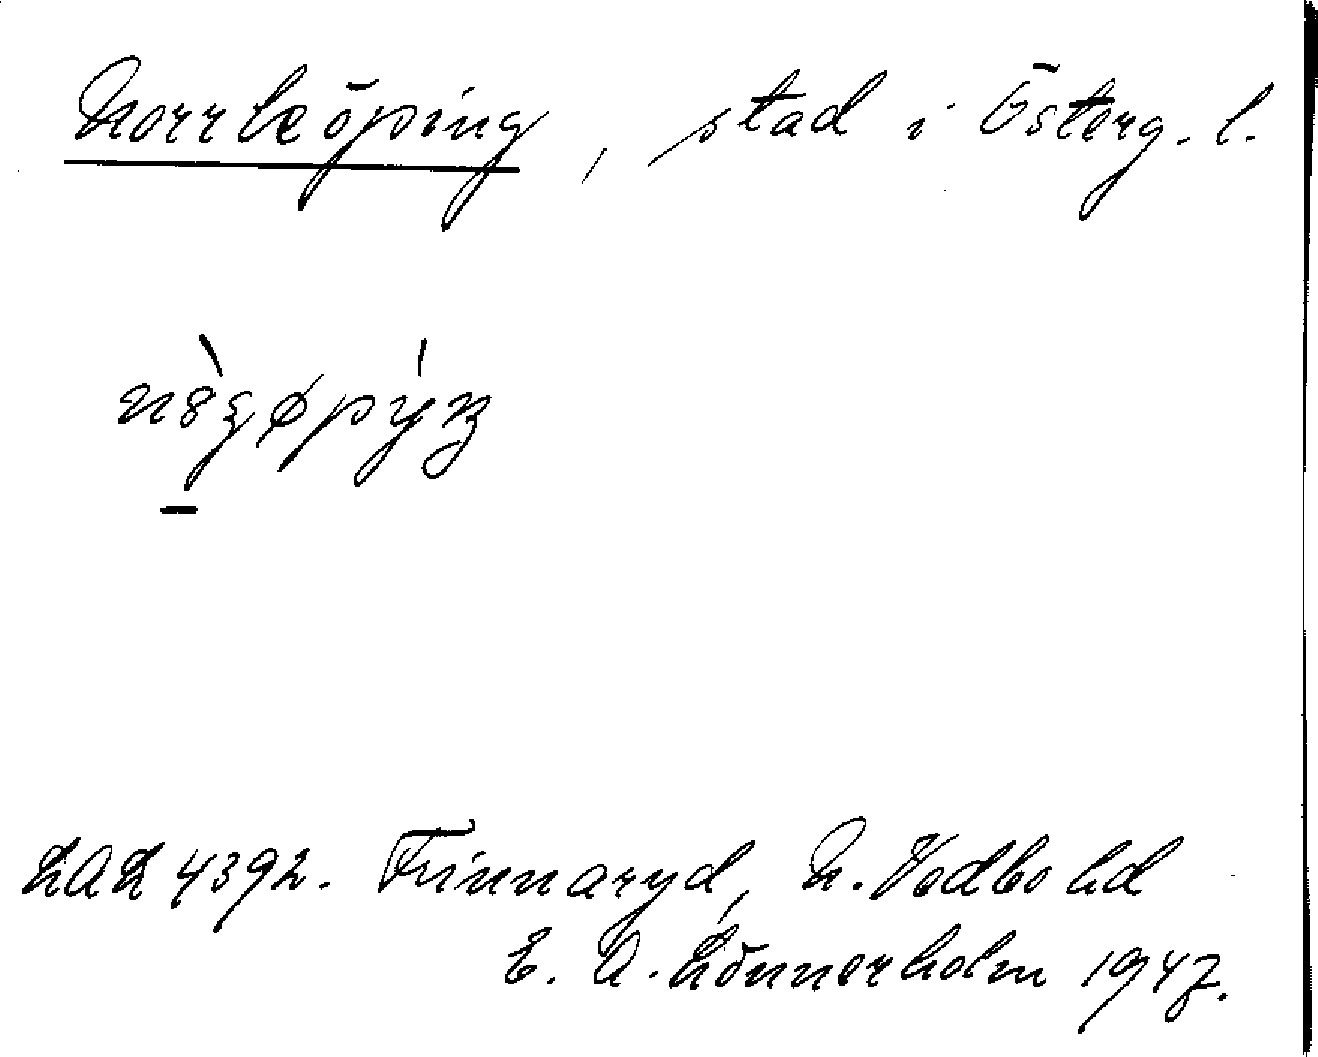 Norrköping, stad i Österg. l.
LAL 4392. Finnaryd, N. Vedbohd
E. A. Lönnerholm 1947.